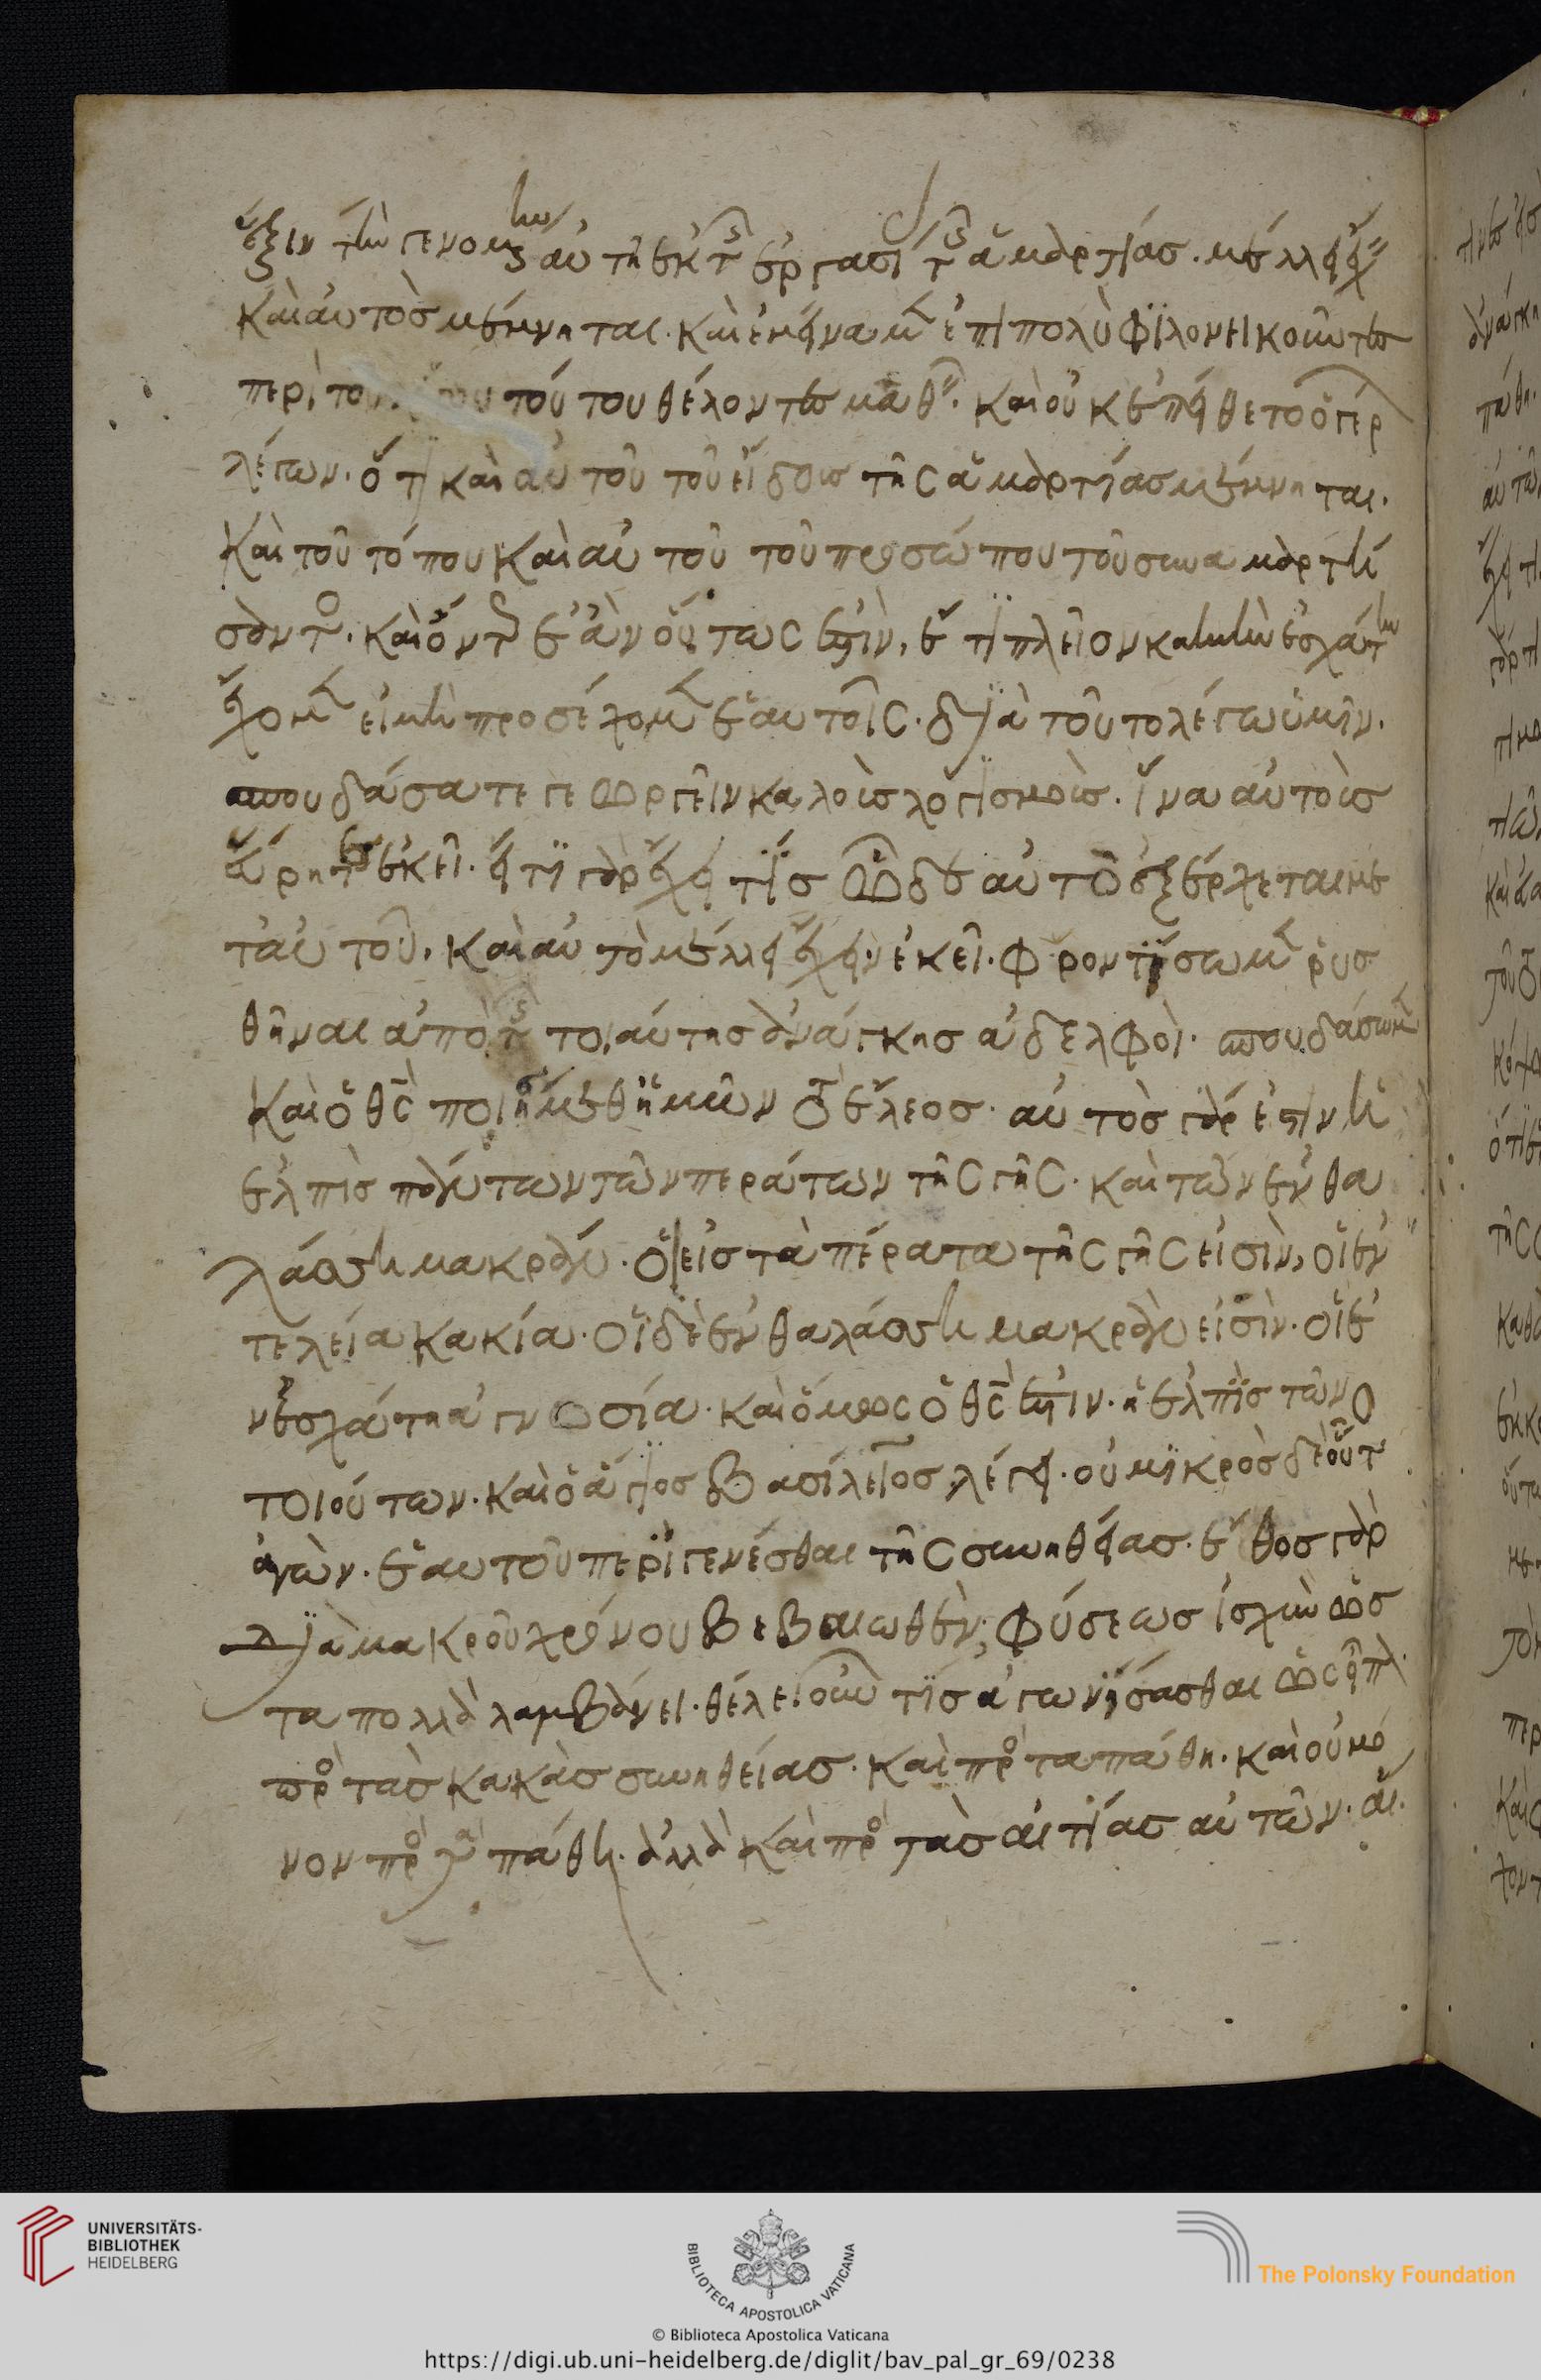 ἕξιν τὴν γενομένην αὐτῇ ἐκ τῆς ἐργασί τῆς ἁμαρτίας. μέλλει
καὶ αὐτὸς μέμνηται. καὶ ἐμείναμεν ἐπὶ πολὺ φιλονεικοῦντες
περὶ τοῦ τούτου θέλοντες μαθεῖν. καὶ οὐκ ἐπείθετο ὁ γέρ
λέγων. ὅτι καὶ αὐτοῦ τοῦ εἴδους τῆς ἁμαρτίας μέμνηται.
καὶ τοῦ τόπου καὶ αὐτοῦ τοῦ προσώπου τοῦ συναμαρτή
σαντος. καὶ ὄντως ἐὰν οὕτως ἐστὶν, ἔτι πλεῖον καλὴν ἐσχάτην
ἔχομεν εἰ μὴ προσέχομεν ἑαυτοῖς. διὰ τοῦτο λέγω ὑμῖν.
σπουδάσατε γεωργεῖν καλοὺς λογισμούς. ἵνα αὐτοὺς
εὕρητε ἐκεῖ. εἴ τι γὰρ ἔχει τίς ὧδε αὐτὸ ἐξέρχεται με
τ' αὐτοῦ. καὶ αὐτὸ μέλλει ἔχειν ἐκεῖ. φροντίσωμεν ῥυσ
θῆναι ἀπὸ τῆς τοιαύτης ἀνάγκης ἀδελφοί. σπουδάσωμεν
καὶ ὁ θς ποιήσει μεθ' ἡμῶν τὸ ἔλεος. αὐτὸς γάρ ἐστιν ἡ
ἐλπὶς πάντων τῶν περάτων τῆς γῆς. καὶ τῶν ἐν θα
λάσσῃ μακράν. οἱ εἰς τὰ πέρατα τῆς γῆς εἰσὶν, οἱ ἐν
τελεία κακία. οἱ δὲ ἐν θαλάσσῃ μακρὰν εἰσὶν. οἱ ἐ
ν ἐσχάτη ἀγνωσία. καὶ ὅμως ὁ θς ἐστιν. ἡ ἐλπὶς τῶν
τοιούτων. καὶ ὁ ἅγιος βασίλειος λέγει. οὐ μικρὸς δὲ οὗτ
ἀγὼν. ἑαυτοῦ περιγενέσθαι τῆς συνηθείας. ἔθος γὰρ
διὰ μακροῦ χρόνου βεβαιωθὲν, φύσεως ἰσχὺν ὡς
τα πολλὰ λαμβάνει. θέλει οὖν τίς ἀγωνίσασθαι ὡς
πρὸς τὰς κακὰς συνηθείας. καὶ πρὸς τα πάθη. καὶ οὐ μό
νον πρὸς τὰ πάθη. ἀλλὰ καὶ πρὸς τὰς αἰτίας αὐτῶν. αἵ
UNIVERSITÄTS-
BIBLIOTHEK
HEIDELBERG
BIBLIOTECA APOSTOLICA VATICANA
The Polonsky Foundation
© Biblioteca Apostolica Vaticana
https://digi.ub.uni-heidelberg.de/diglit/bav_pal_gr_69/0238